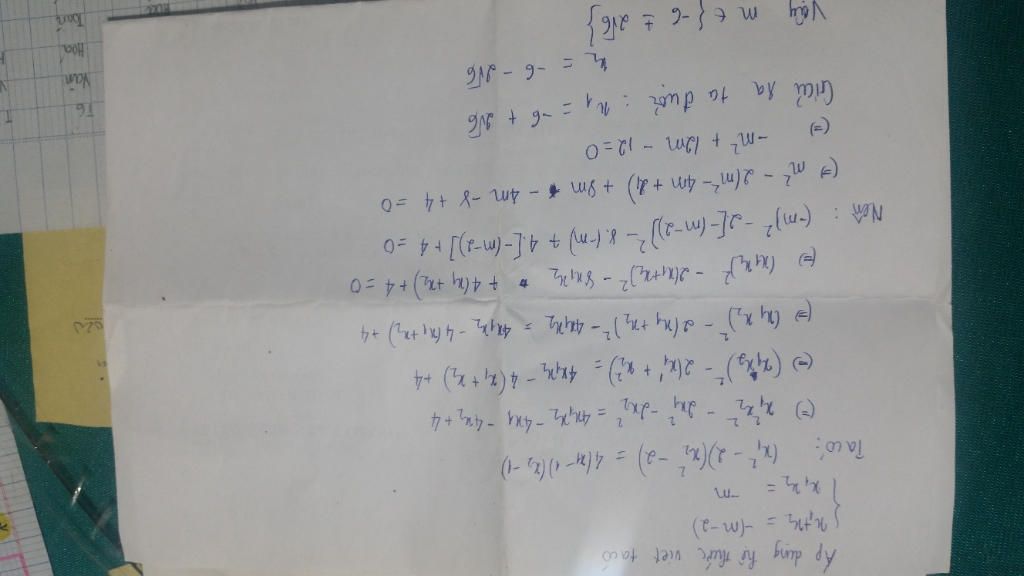 Áp dụng hệ thức viet ta có
{ x₁+x₂ = -(m-2)
x₁x₂ = -m
Ta có: (x₁² - 2)(x₂² - 2) = 4(x₁-1)(x₂-1)
(=) x₁²x₂² - 2x₁² - 2x₂² = 4x₁x₂ - 4x₁ - 4x₂ + 4
(=) (x₁x₂)² - 2(x₁² + x₂²) = 4x₁x₂ - 4(x₁ + x₂) + 4
(=) (x₁x₂)² - 2(x₁+x₂)² - 4x₁x₂ = 4x₁x₂ - 4(x₁+x₂) + 4
(=) (x₁x₂)² - 2(x₁+x₂)² - 8x₁x₂ + 4(x₁+x₂) + 4 = 0
Nên: (-m)² - 2[-(m-2)]² - 8.(-m) + 4.[-(m-2)] + 4 = 0
(=) m² - 2(m² - 4m + 4) + 8m - 4m - 8 + 4 = 0
(=) -m² + 12m - 12 = 0
Giải ra ta được: x₁ = -6 + 2√6
x₂ = -6 - 2√6
Vậy m ∈ {-6 ± 2√6}
Toán
Hoá
Văn